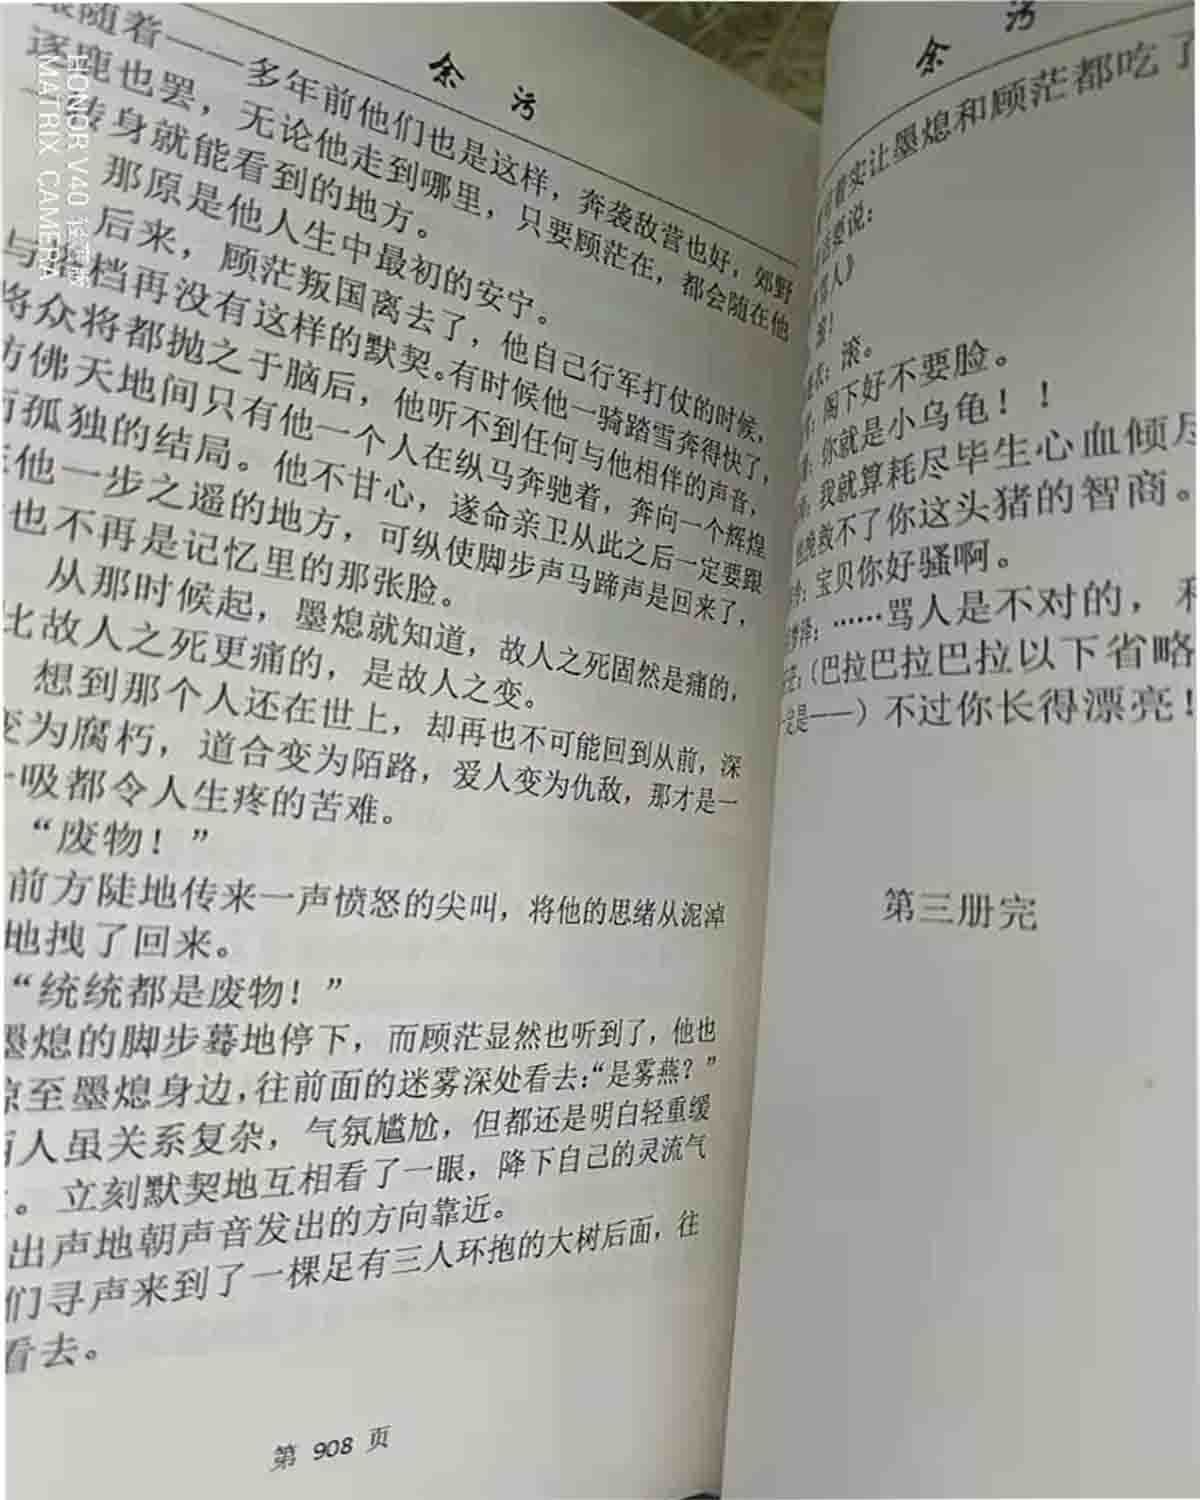 余 污
随着——多年前他们也是这样，奔袭敌营也好，郊野
逐鹿也罢，无论他走到哪里，只要顾茫在，都会随在他
一转身就能看到的地方。
那原是他人生中最初的安宁。
后来，顾茫叛国离去了，他自己行军打仗的时候，
与 档再没有这样的默契。有时候他一骑踏雪奔得快了，
将众将都抛之于脑后，他听不到任何与他相伴的声音，
仿佛天地间只有他一个人在纵马奔驰着，奔向一个辉煌
而孤独的结局。他不甘心，遂命亲卫从此之后一定要跟
在他一步之遥的地方，可纵使脚步声马蹄声是回来了，
也不再是记忆里的那张脸。
从那时候起，墨熄就知道，故人之死固然是痛的，
比故人之死更痛的，是故人之变。
想到那个人还在世上，却再也不可能回到从前，深
变为腐朽，道合变为陌路，爱人变为仇敌，那才是一
吸都令人生疼的苦难。
“废物！”
前方陡地传来一声愤怒的尖叫，将他的思绪从泥淖
地拽了回来。
“统统都是废物！”
墨熄的脚步蓦地停下，而顾茫显然也听到了，他也
掠至墨熄身边，往前面的迷雾深处看去：“是雾燕？”
两人虽关系复杂，气氛尴尬，但都还是明白轻重缓
。立刻默契地互相看了一眼，降下自己的灵流气
出声地朝声音发出的方向靠近。
们寻声来到了一棵足有三人环抱的大树后面，往
看去。
第 908 页
余 污
着实让墨熄和顾茫都吃了
要说：
人》
！
：滚。
：阁下好不要脸。
：你就是小乌龟！！
：我就算耗尽毕生心血倾尽
挽救不了你这头猪的智商。
：宝贝你好骚啊。
梦泽：……骂人是不对的，和
：（巴拉巴拉巴拉以下省略
定是——）不过你长得漂亮！
第三册完
HONOR V40 轻奢版
MATRIX CAMERA